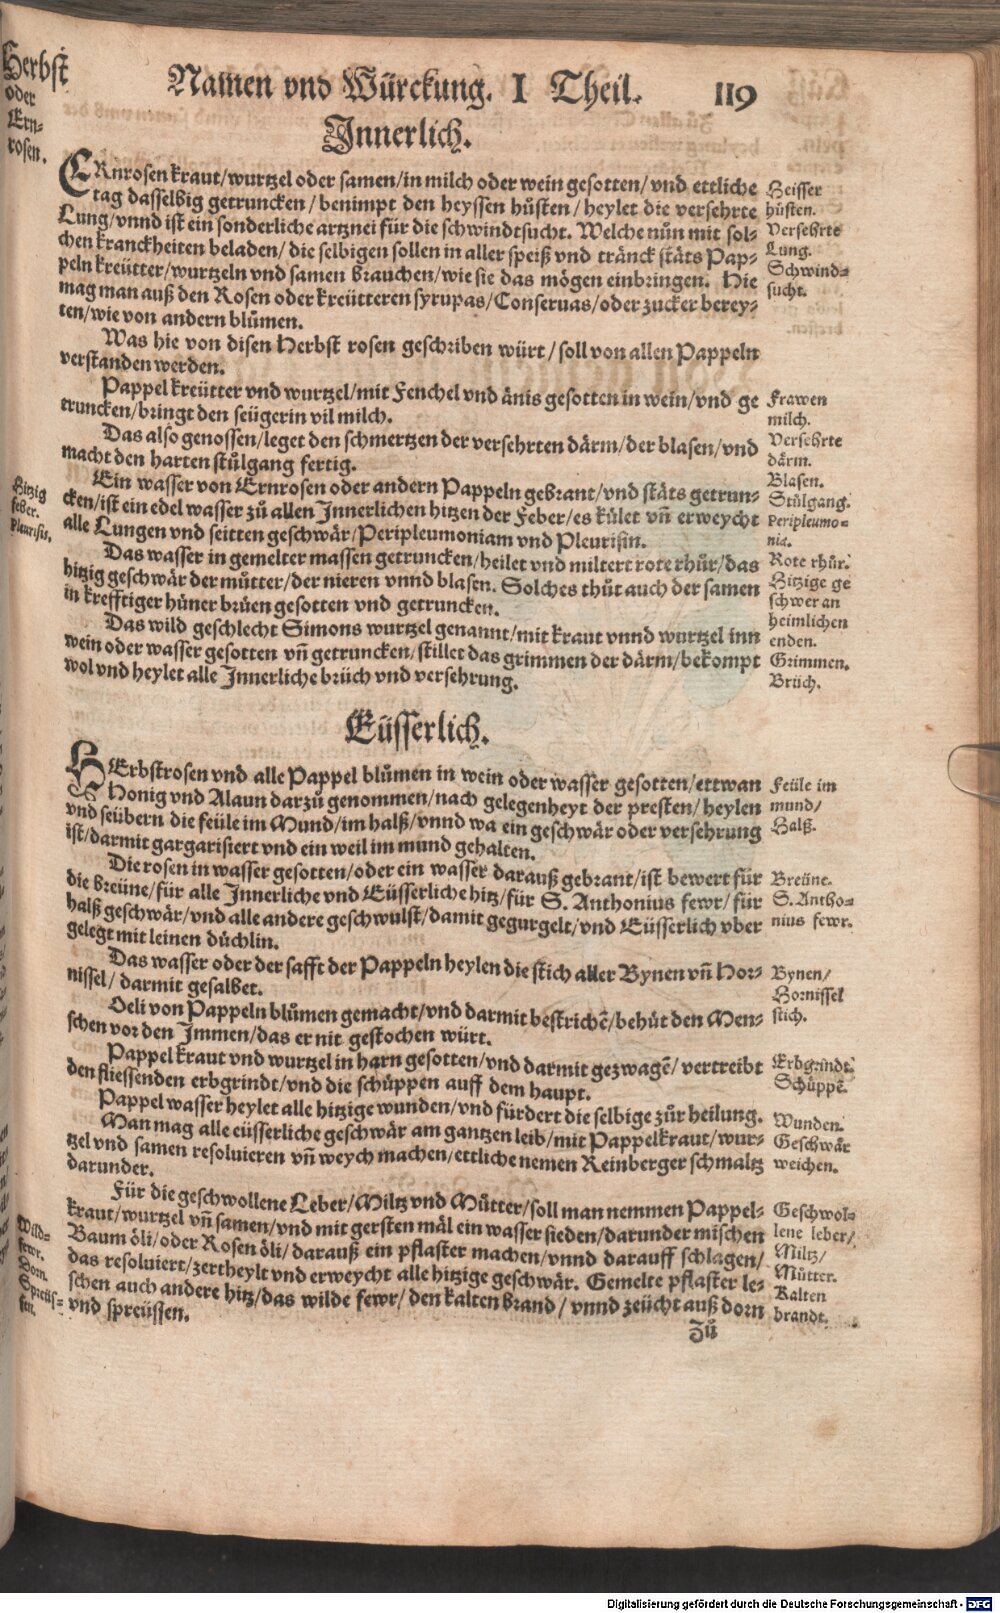 Herbst
oder
Ern-
rosen.
Namen vnd Würckung. I Theil. 119
Innerlich.
ERnrosen kraut/wurtzel oder samen/in milch oder wein gesotten/vnd ettliche
tag dasselbig getruncken/benimpt den heyssen hůsten/heylet die versehrte
Lung/vnnd ist ein sonderliche artznei für die schwindtsucht. Welche nůn mit sol-
chen kranckheiten beladen/die selbigen sollen in aller speiß vnd tränck stäts Pap-
peln kreütter/wurtzeln vnd samen brauchen/wie sie das mögen einbringen. Hie
mag man auß den Rosen oder kreütteren syrupas/Conseruas/oder zucker berey-
ten/wie von andern blůmen.
Was hie von disen Herbst rosen geschriben würt/soll von allen Pappeln
verstanden werden.
Pappel kreütter vnd wurtzel/mit Fenchel vnd änis gesotten in wein/vnd ge
truncken/bringt den seügerin vil milch.
Das also genossen/leget den schmertzen der versehrten därm/der blasen/vnd
macht den harten stůlgang fertig.
Ein wasser von Ernrosen oder andern Pappeln gebrant/vnd stäts getrun-
cken/ist ein edel wasser zů allen Innerlichen hitzen der Feber/es kület vñ erweycht
alle Lungen vnd seitten geschwär/Peripleumoniam vnd Pleurisin.
Das wasser in gemelter massen getruncken/heilet vnd miltert rote rhůr/das
hitzig geschwär der můtter/der nieren vnnd blasen. Solches thůt auch der samen
in krefftiger hüner brüen gesotten vnd getruncken.
Das wild geschlecht Simons wurtzel genannt/mit kraut vnnd wurtzel inn
wein oder wasser gesotten vñ getruncken/stillet das grimmen der därm/bekompt
wol vnd heylet alle Innerliche brüch vnd versehrung.
Heisser
hůsten.
Versehrte
Lung.
Schwind-
sucht.
Frawen
milch.
Versehrte
därm.
Blasen.
Stůlgang.
Peripleumo-
nia.
Rote rhůr.
Hitzige ge
schwer an
heimlichen
enden.
Grimmen.
Brüch.
Hitzig
feber.
Pleurisis.
Eüsserlich.
HErbstrosen vnd alle Pappel blůmen in wein oder wasser gesotten/ettwan
Honig vnd Alaun darzů genommen/nach gelegenheyt der presten/heylen
vnd seübern die feüle im Mund/im halß/vnnd wa ein geschwär oder versehrung
ist/darmit gargarisiert vnd ein weil im mund gehalten.
Die rosen in wasser gesotten/oder ein wasser darauß gebrant/ist bewert für
die breüne/für alle Innerliche vnd Eüsserliche hitz/für S. Anthonius fewr/für
halß geschwär/vnd alle andere geschwulst/damit gegurgelt/vnd Eüsserlich vber
gelegt mit leinen düchlin.
Das wasser oder der safft der Pappeln heylen die stich aller Bynen vñ Hor-
nissel/darmit gesalbet.
Oeli von Pappeln blůmen gemacht/vnd darmit bestrichẽ/behůt den Men-
schen vor den Immen/das er nit gestochen würt.
Pappel kraut vnd wurtzel in harn gesotten/vnd darmit gezwagẽ/vertreibt
den fliessenden erbgrindt/vnd die schüppen auff dem haupt.
Pappel wasser heylet alle hitzige wunden/vnd fürdert die selbige zůr heilung.
Man mag alle eüsserliche geschwär am gantzen leib/mit Pappelkraut/wur-
tzel vnd samen resoluieren vñ weych machen/ettliche nemen Reinberger schmaltz
darunder.
Für die geschwollene Leber/Miltz vnd Můtter/soll man nemmen Pappel-
kraut/wurtzel vñ samen/vnd mit gersten mäl ein wasser sieden/darunder mischen
Baum öli/oder Rosen öli/darauß ein pflaster machen/vnnd darauff schlagen/
das resoluiert/zertheylt vnd erweycht alle hitzige geschwär. Gemelte pflaster le-
schen auch andere hitz/das wilde fewr/den kalten brand/vnnd zeücht auß dorn
vnd spreüssen.
Zů
Feüle im
mund/
Halß.
Breüne.
S. Antho-
nius fewr.
Bynen/
Hornissel
stich.
Erbgrindt.
Schüppẽ.
Wunden.
Geschwär
weichen.
Geschwol-
lene leber/
Miltz/
Můtter.
Kalten
brandt.
Wild-
fewr.
Dorn.
Spreüs-
sen.
Digitalisierung gefördert durch die Deutsche Forschungsgemeinschaft - DFG